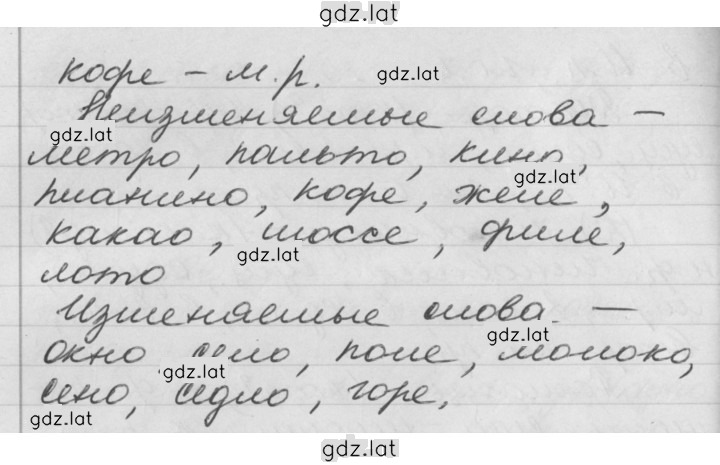 gdz.lat
кофе – м.р.
gdz.lat
Неизменяемые слова –
gdz.lat
метро, пальто, кино,
gdz.lat
пианино, кофе, желе,
какао, шоссе, филе,
gdz.lat
лото
Изменяемые слова –
gdz.lat
окно село, поле, молоко,
gdz.lat
сено, седло, горе,
gdz.lat
gdz.lat